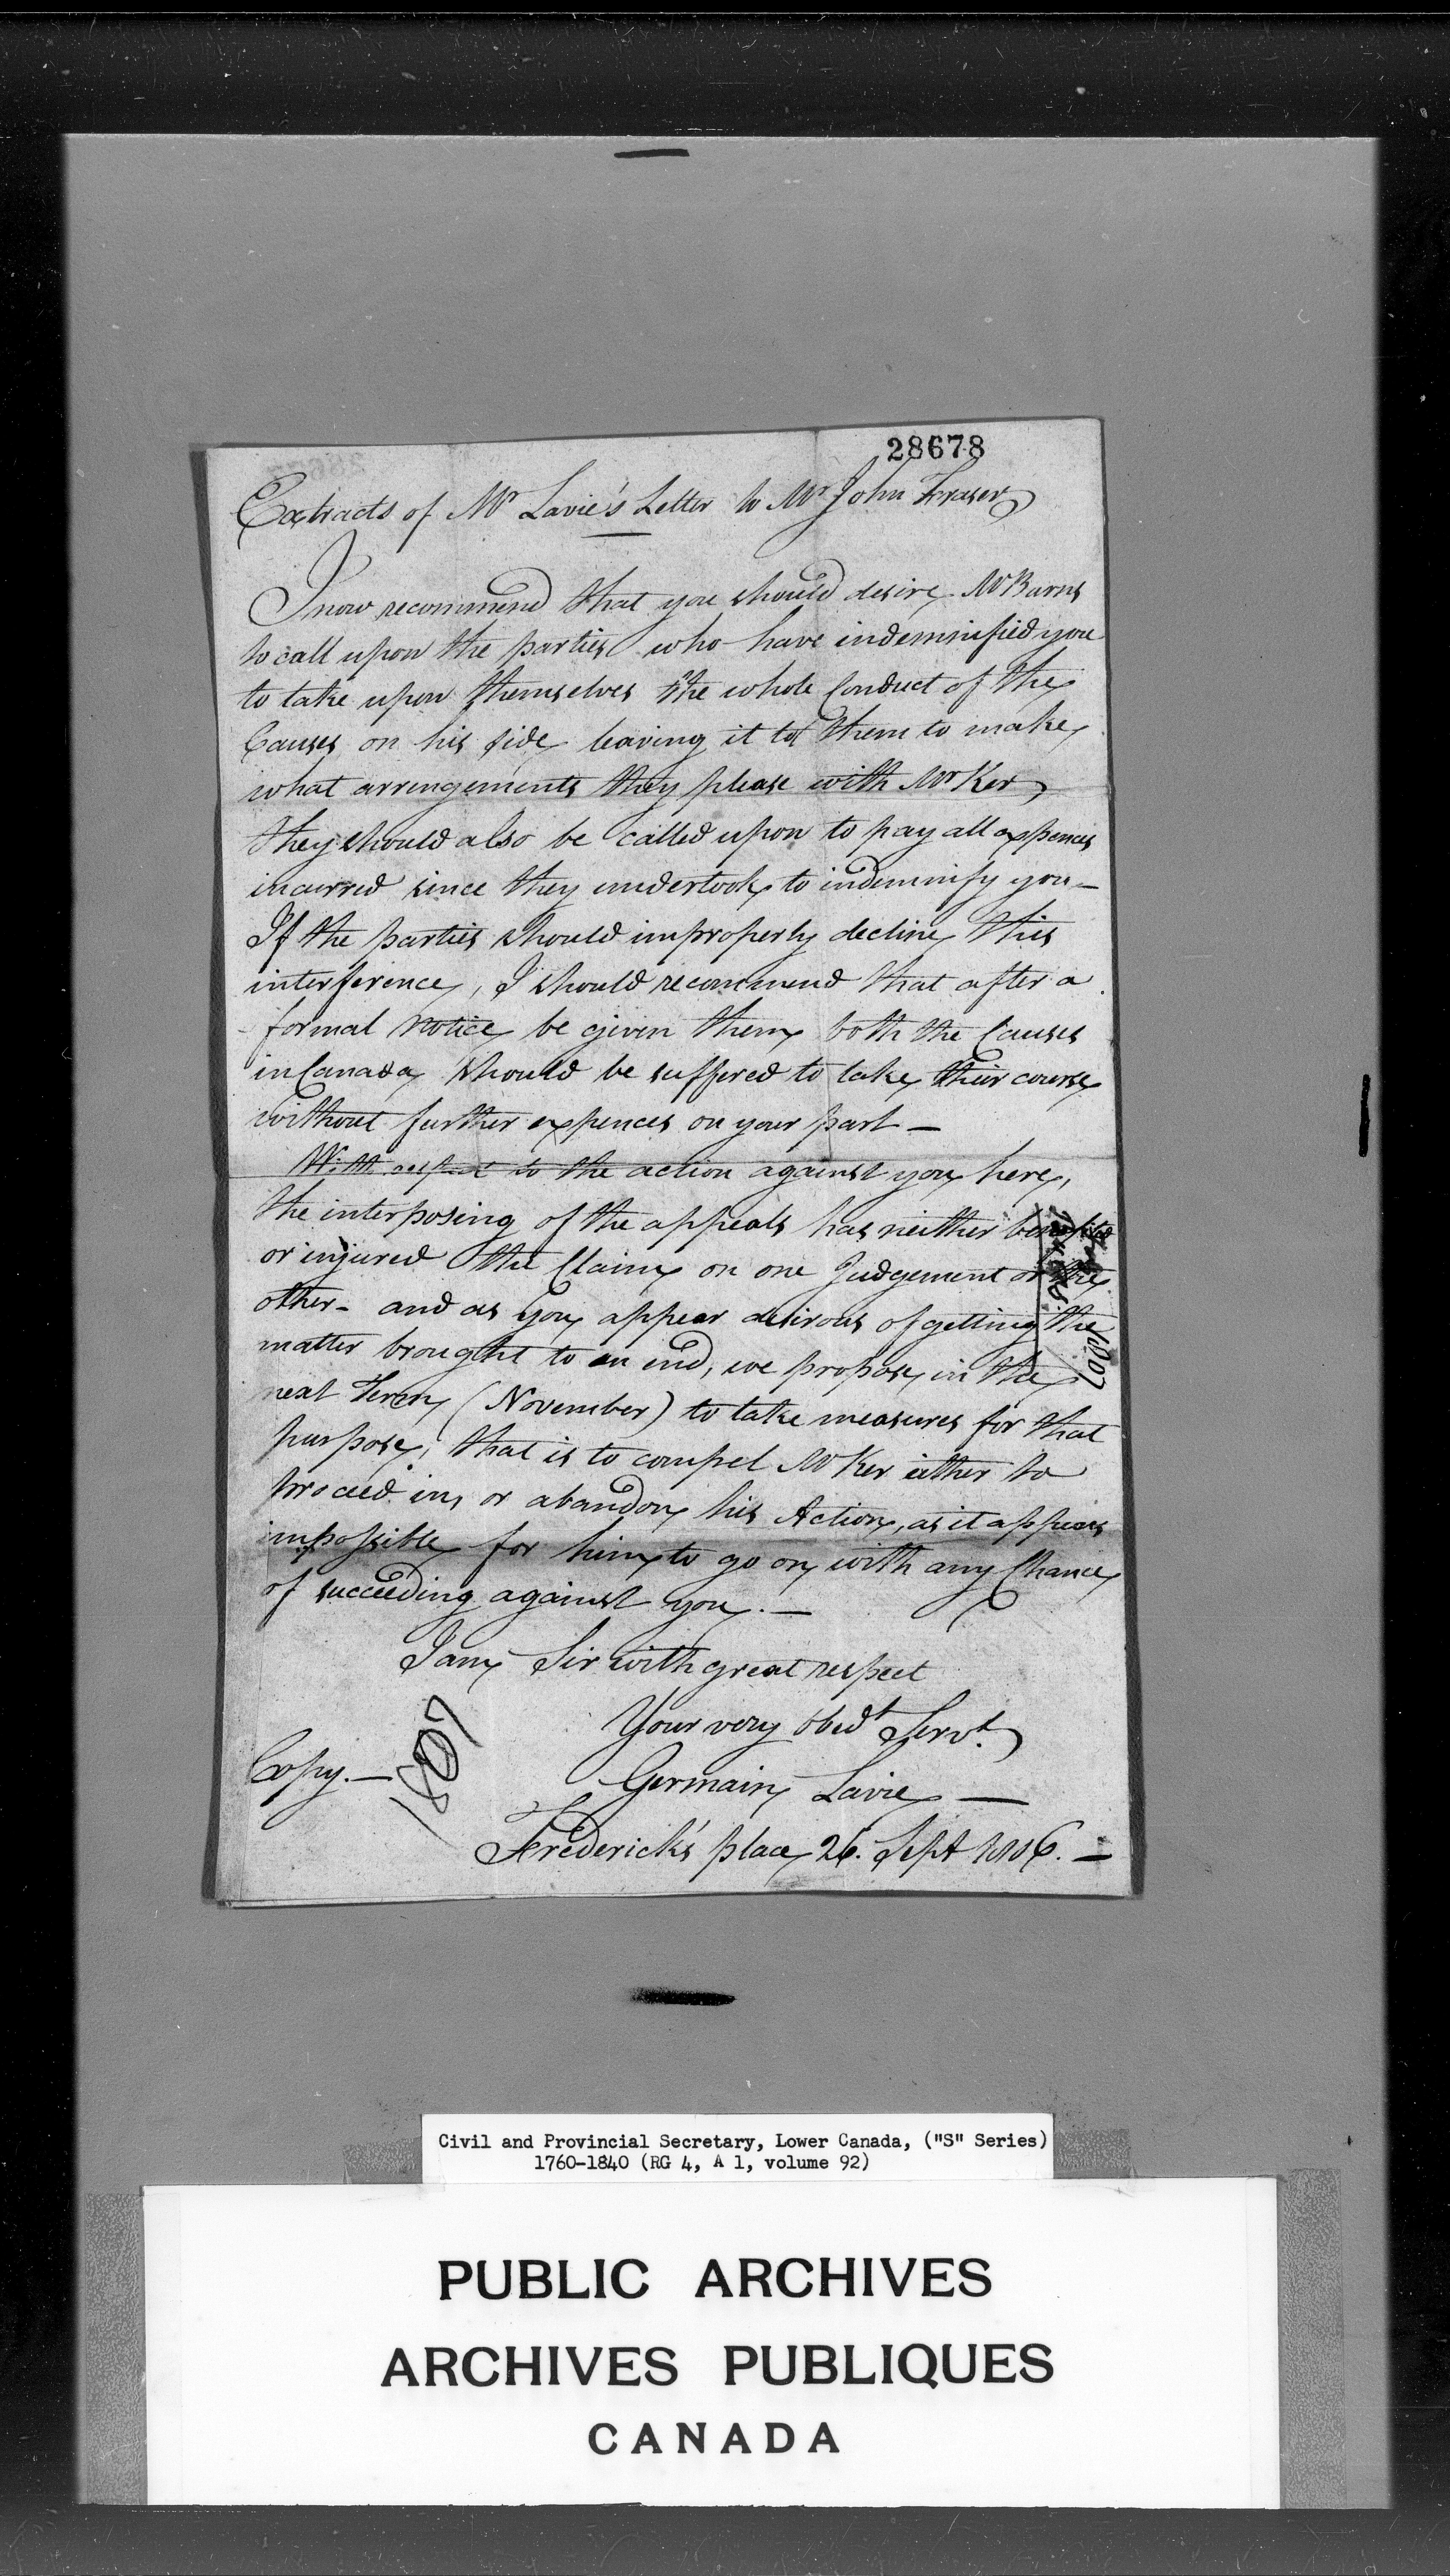 28678
Extracts of Mr Lavie's Letter to Mr John Fraser
I now recommend that you should desire Mr Burns
to call upon the parties who have indemnified you
to take upon themselves the whole Conduct of the
Causes on his side leaving it to them to make
what arrengements they please with Mr Ker,
they should also be called upon to pay all expences
incurred since they undertook to indemnify you -
If the parties should improperly decline this
interference, I should recommend that after a
formal Notice be given them both the Causes
in Canada should be suffered to take their course
without further expences on your part -
With respect to the action against you here,
the interposing of the appeals has neither benefited
or injured the Claim on one Judgement or the
other - and as you appear desirous of getting the
matter brought to an end, we propose, in the
next Term (November) to take measures for that
purpose, that is to compel Mr Ker either to
proceed in, or abandon his Action, as it appears
impossible for him to go on with any Chance
of succeeding against you. -
I am Sir with great respect
Your very obedt Servt.
Copy. -
1807
Germain Lavie -
Frederick's place 26. Sept 1806. -
1807
Civil and Provincial Secretary, Lower Canada, ("S" Series)
1760-1840 (RG 4, A 1, volume 92)
PUBLIC ARCHIVES
ARCHIVES PUBLIQUES
CANADA